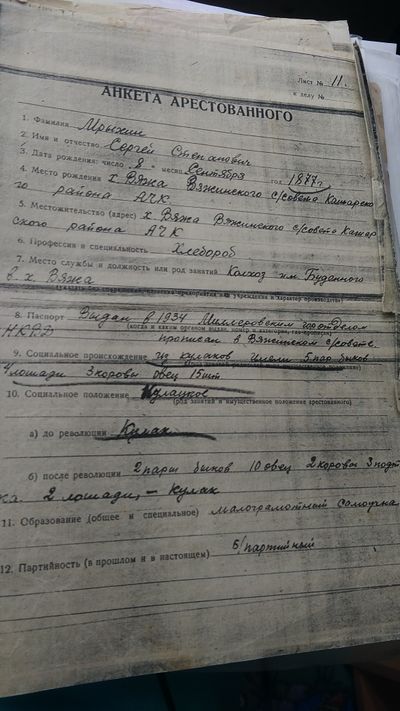 Лист № 11.
к делу №
АНКЕТА АРЕСТОВАННОГО
1. Фамилия Мрыхин
2. Имя и отчество Сергей Степанович
3. Дата рождения: число 8 месяц Сентября год 1877 г
4. Место рождения х Вяжа Вяжинского с/совета Кашарско
го района АЧК
5. Местожительство (адрес) х Вяжа Вяжинского с/совета Кашар
ского района АЧК
6. Профессия и специальность Хлебороб
7. Место службы и должность или род занятий Колхоз им Буденного
в х. Вяжа
8. Паспорт Выдан в 1934 Миллеровским горотделом
(когда и каким органом выдан, номер
НКВД прописан в Вяжинском с/совете
9. Социальное происхождение из кулаков имели 5 пар быков
4 лошади 3 коровы овец 15 шт
10. Социальное положение Кулацкое
(род занятий и имущественное положение арестованного)
а) до революции Кулак
б) после революции 2 пары быков 10 овец 2 коровы 3 подт
ка 2 лошади, – кулак
11. Образование (общее и специальное) малограмотный Самоучка
12. Партийность (в прошлом и в настоящем) б/партийный